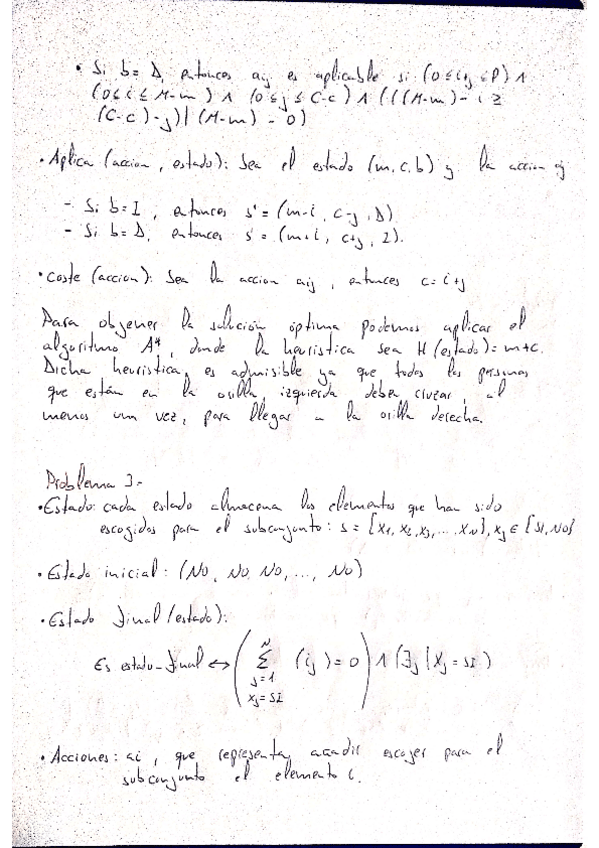 • Si b = D, entonces aij es aplicable si (0 ≤ i+j ≤ P) ∧
(0 ≤ i ≤ M-m) ∧ (0 ≤ j ≤ C-c) ∧ (((M-m) - i ≥
(C-c) - j) | (M-m) - 0)
• Aplica (accion, estado): Sea el estado (m, c, b) y la accion aij
- Si b = I, entonces s' = (m-i, c-j, D)
- Si b = D, entonces s' = (m+i, c+j, I).
• Coste (accion): Sea la accion aij, entonces c = i+j
Para obtener la solución óptima podemos aplicar el
algoritmo A*, donde la heurística sea H(estado) = m+c.
Dicha heuristica, es admisible ya que todas las personas
que están en la orilla izquierda deben cruzar, al
menos una vez, para llegar a la orilla derecha.
Problema 3.-
• Estado: cada estado almacena los elementos que han sido
escogidos para el subconjunto: s = {x1, x2, x3, ... xN}, xj ∈ {SI, NO}
• Estado inicial: (NO, NO, NO, ..., NO)
• Estado final (estado):
Es estado_final ↔ ( N Σ j=1 xj=SI (ij) = 0 ) ∧ (∃j | xj = SI)
• Acciones: ai, que representa añadir escoger para el
subconjunto el elemento i.